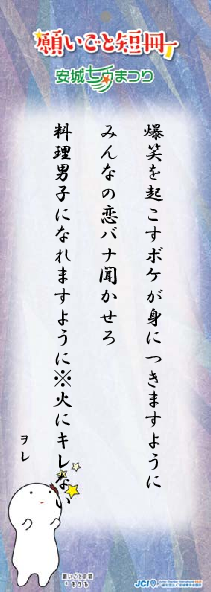 願いごと短冊
安城七夕まつり
爆笑を起こすボケが身につきますように
みんなの恋バナ聞かせろ
料理男子になれますように※火にキレない
ヲレ